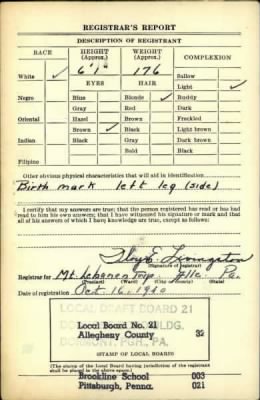 REGISTRAR'S REPORT
DESCRIPTION OF REGISTRANT
RACE HEIGHT (Approx.) WEIGHT (Approx.) COMPLEXION
White ✓ 6'1" 176 Sallow
EYES HAIR Light ✓
Negro Blue Blonde ✓ Ruddy
Gray Red Dark
Oriental Hazel Brown Freckled
Brown ✓ Black Light brown
Indian Black Gray Dark brown
Bald Black
Filipino
Other obvious physical characteristics that will aid in identification
Birth mark left leg (side)
I certify that my answers are true; that the person registered has read or has had
read to him his own answers; that I have witnessed his signature or mark and that
all of his answers of which I have knowledge are true, except as follows:
Livingston
(Signature of registrar)
Registrar for Mt. Lebanon Twp. Alle. Pa.
(Precinct) (Ward) (City or county) (State)
Date of registration Oct 16, 1940
LOCAL DRAFT BOARD 21
BLDG.
PGH., PA.
Local Board No. 21
Allegheny County 32
(STAMP OF LOCAL BOARD)
(The stamp of the Local Board having jurisdiction of the registrant
shall be placed in the above space.)
Brookline School 003
Pittsburgh, Penna. 021